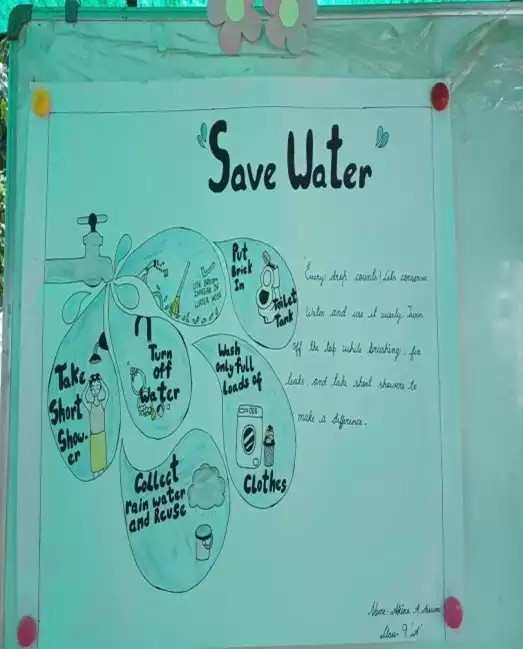 "Save Water"
USE BROOM
INSTEAD OF
WATER HOSE
Put
Brick
In
Toilet
Tank
Turn
off
Water
Take
Short
Show-
er
Wash
only full
Loads of
Clothes
Collect
rain water
and Reuse
"Every drop counts! Lets conserve
Water and use it wisely. Turn
off the tap while brushing. fix
leaks and take short showers to
make a difference.
Name - A.
Class - 9 'A'